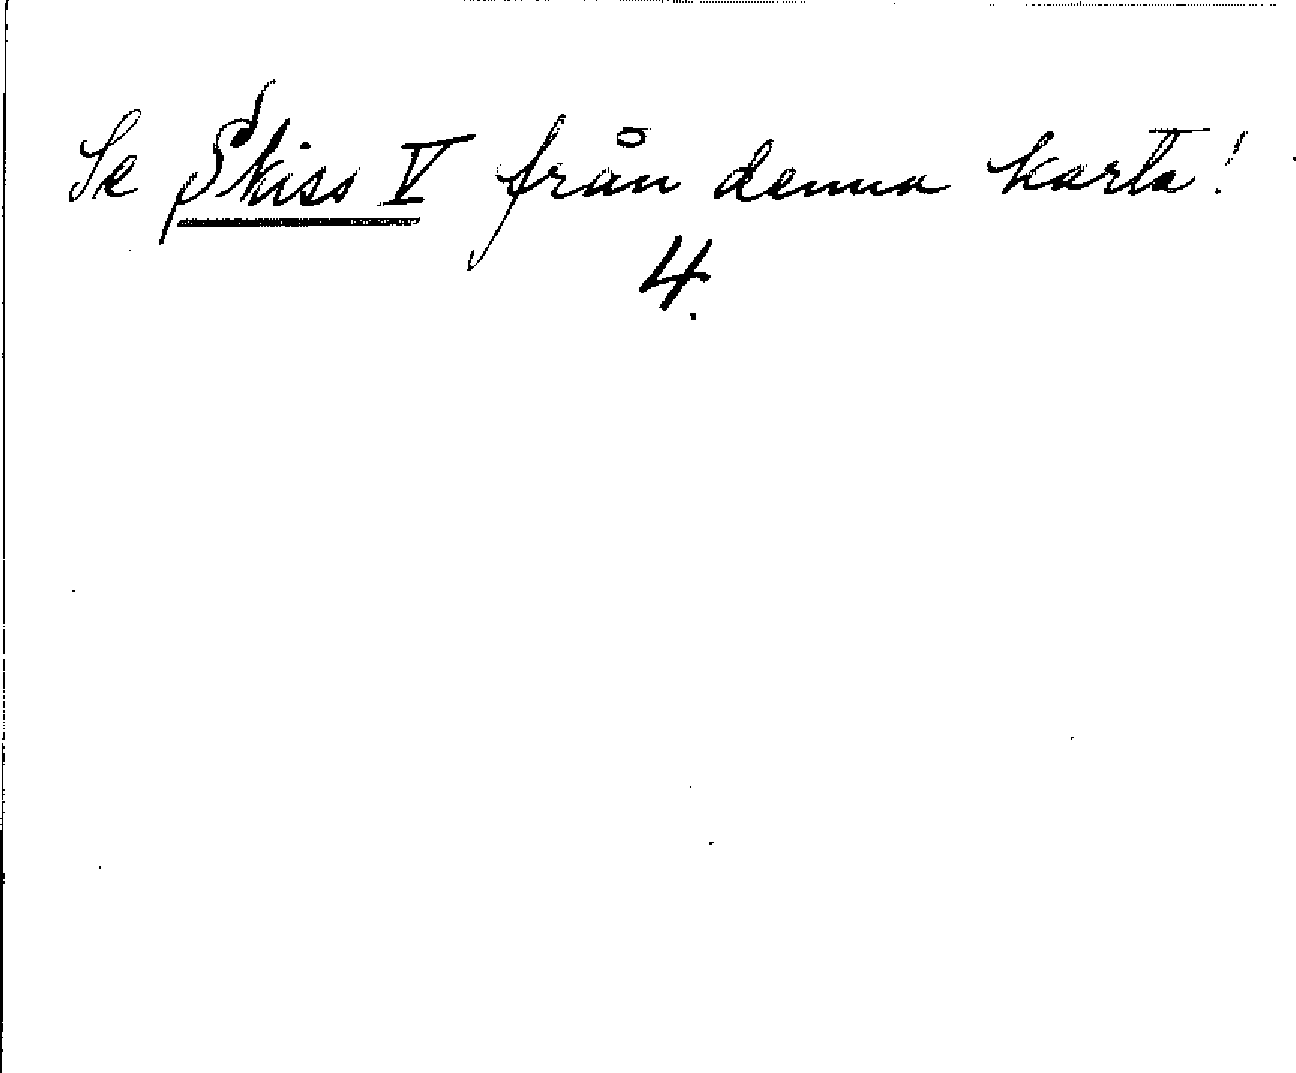 Se Skiss V från denna karta!
4.